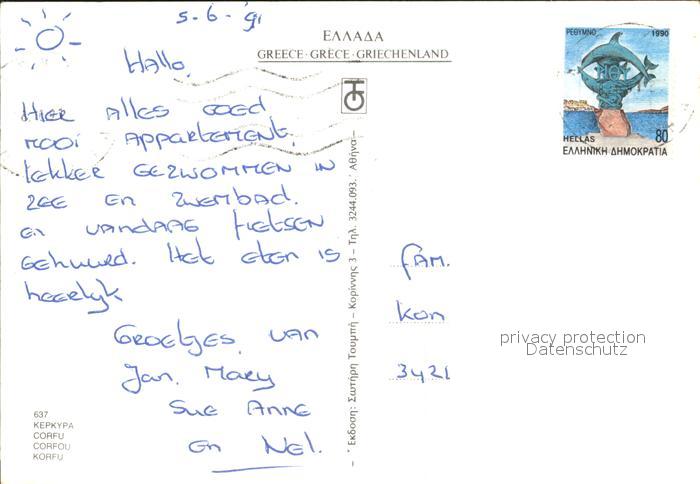 5-6-'91
ΕΛΛΑΔΑ
GREECE·GRÈCE·GRIECHENLAND
Hallo,
HIER Alles GOED
mooi APPARTEMENT,
lekker GEZWOMMEN IN
ZEE en Zwembad.
En VANDAAG FIETSEN
GEHUURD. Het eten is
heerlijk
Groetjes van
Jan, Mary
Sue Anne
en Nel.
637
ΚΕΡΚΥΡΑ
CORFU
CORFOU
KORFU
Ἔκδοση: Σωτήρη Τουμπή – Κορίννης 3 – Τηλ. 3244.093. Ἀθήνα –
ΡΕΘΥΜΝΟ 1990
HELLAS 80
ΕΛΛΗΝΙΚΗ ΔΗΜΟΚΡΑΤΙΑ
FAM.
Kon
3421
privacy protection
Datenschutz